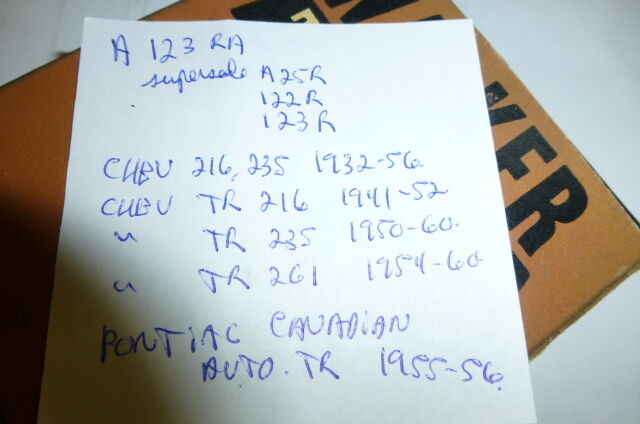 A 123 RA
supersede A25R
122R
123R
CHEV 216, 235 1932-56.
CHEV TR 216 1941-52
" TR 235 1950-60.
" TR 261 1954-60
PONTIAC CANADIAN
AUTO. TR 1955-56.